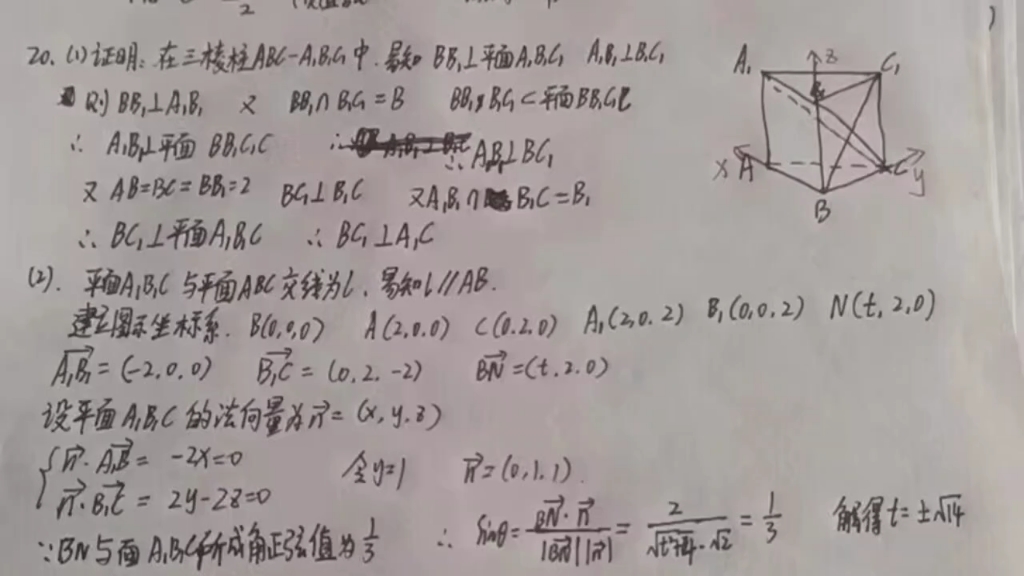 2
20. (1) 证明: 在三棱柱ABC-A₁B₁C₁中, 易知 BB₁⊥平面A₁B₁C₁ A₁B₁⊥B₁C₁
则 BB₁⊥A₁B₁ 又 BB₁∩B₁C₁=B BB₁, B₁C₁⊂平面BB₁C₁C
∴ A₁B₁⊥平面 BB₁C₁C ∴ A₁B₁⊥BC₁
又 AB=BC=BB₁=2 BC₁⊥B₁C 又A₁B₁∩B₁C=B₁
∴ BC₁⊥平面A₁B₁C ∴ BC₁⊥A₁C
A₁ z C₁
B₁
x A C y
B
(2). 平面A₁B₁C 与平面ABC 交线为l, 易知 l∥AB.
建立图示坐标系. B(0,0,0) A(2,0,0) C(0,2,0) A₁(2,0,2) B₁(0,0,2) N(t,2,0)
A₁B₁=(-2,0,0) B₁C=(0,2,-2) BN=(t,2,0)
设平面 A₁B₁C 的法向量为n=(x,y,z)
{n·A₁B₁= -2x=0 令y=1 n=(0,1,1).
n·B₁C = 2y-2z=0
∵BN与面A₁B₁C所成角正弦值为1/3 ∴ sinθ= BN·n/|BN||n| = 2/√t²+4·√2 = 1/3 解得t=±√14